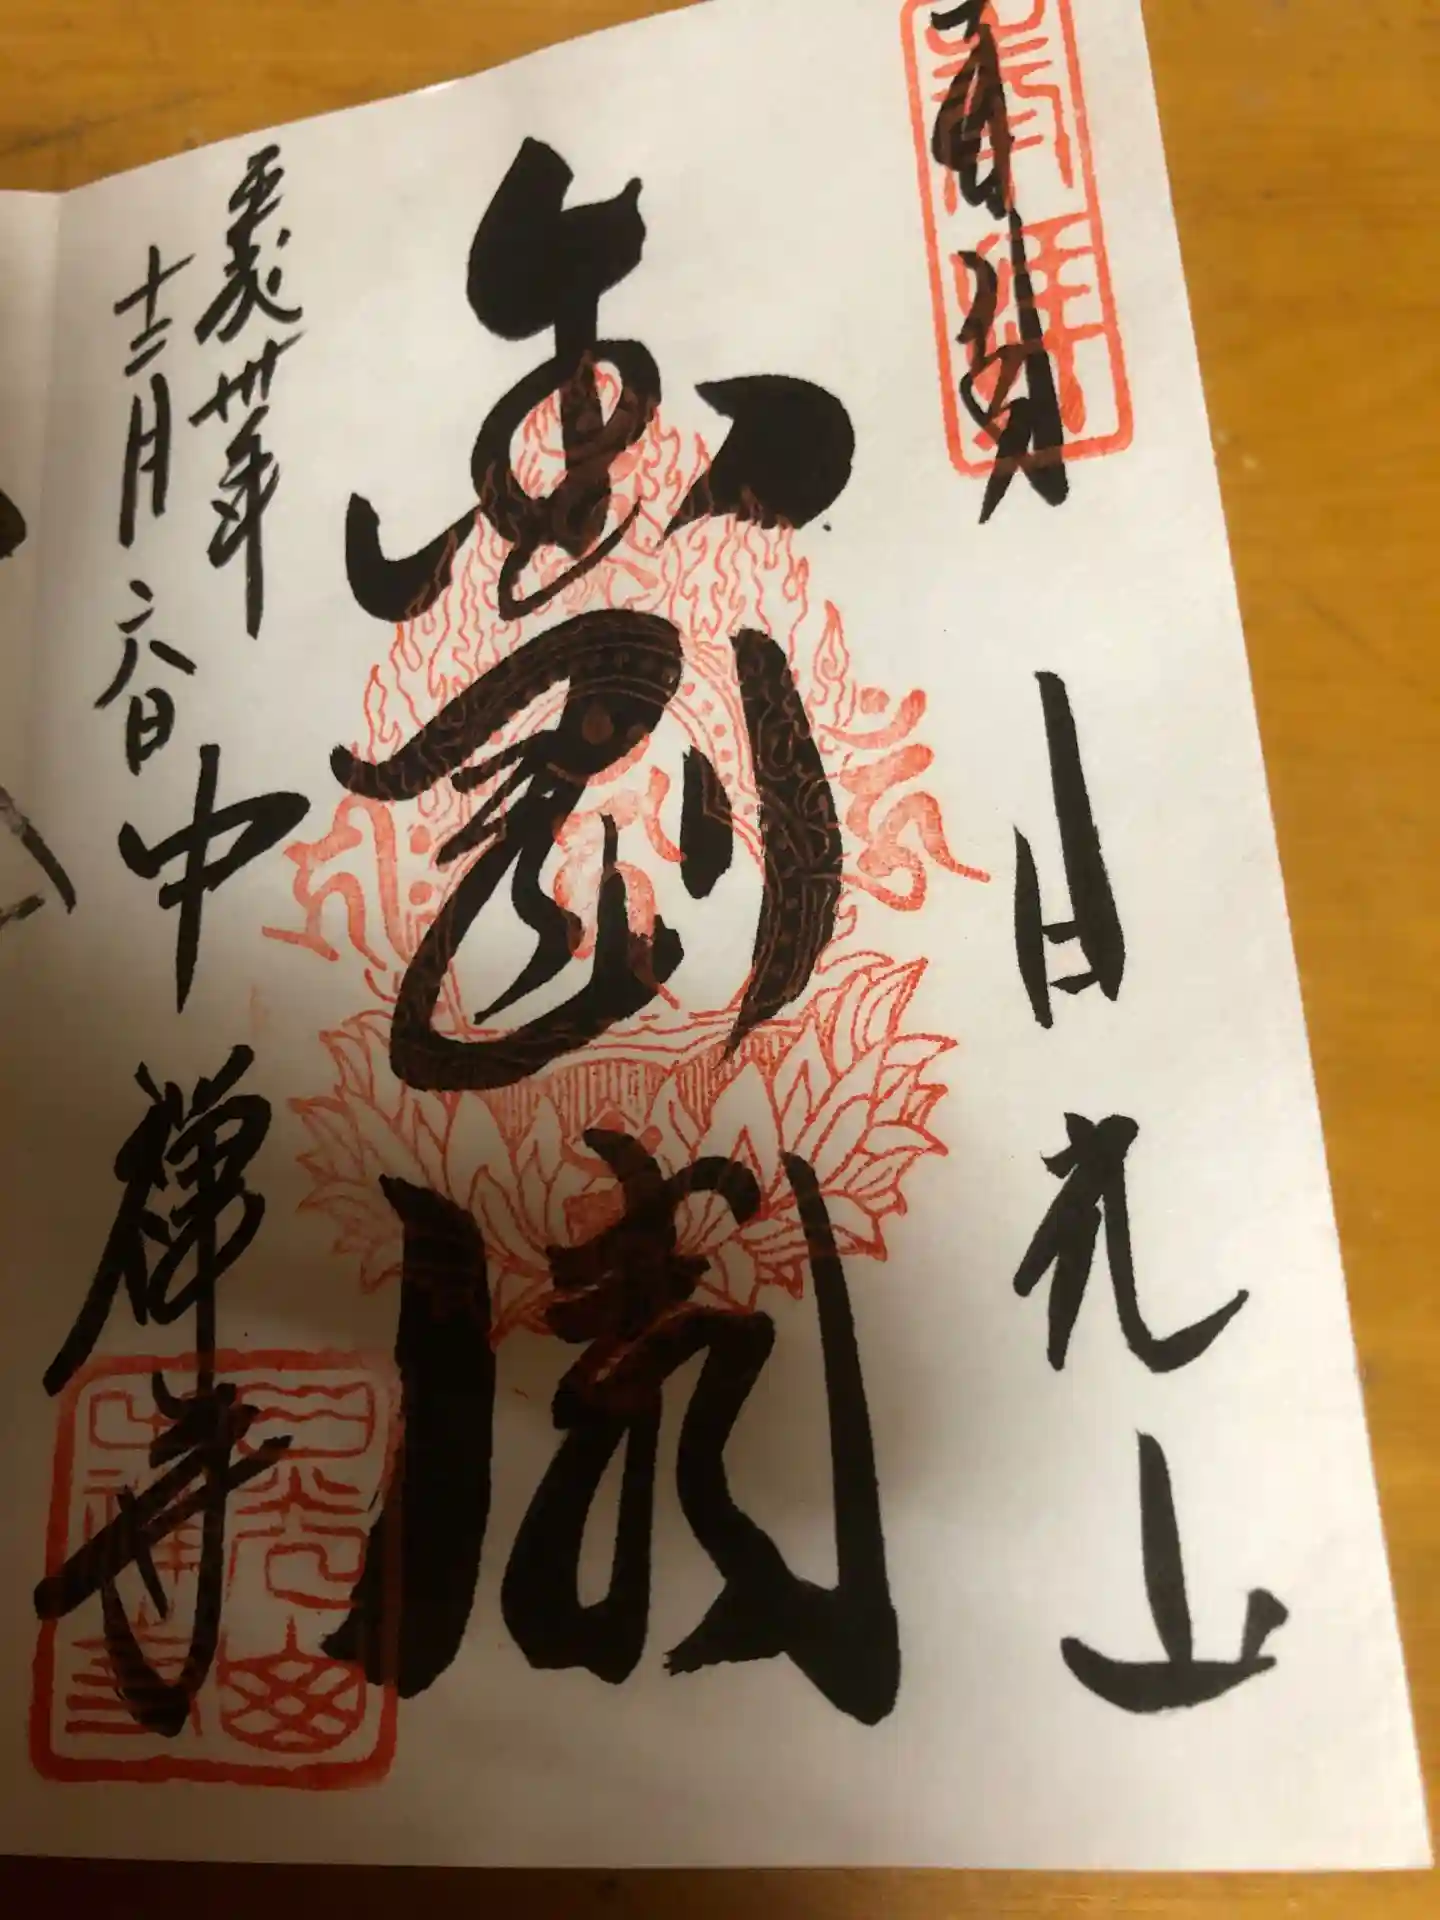 奉拝 日光山
金剛閣
平成卅年
十二月六日
中禅寺
日光山
中禅寺